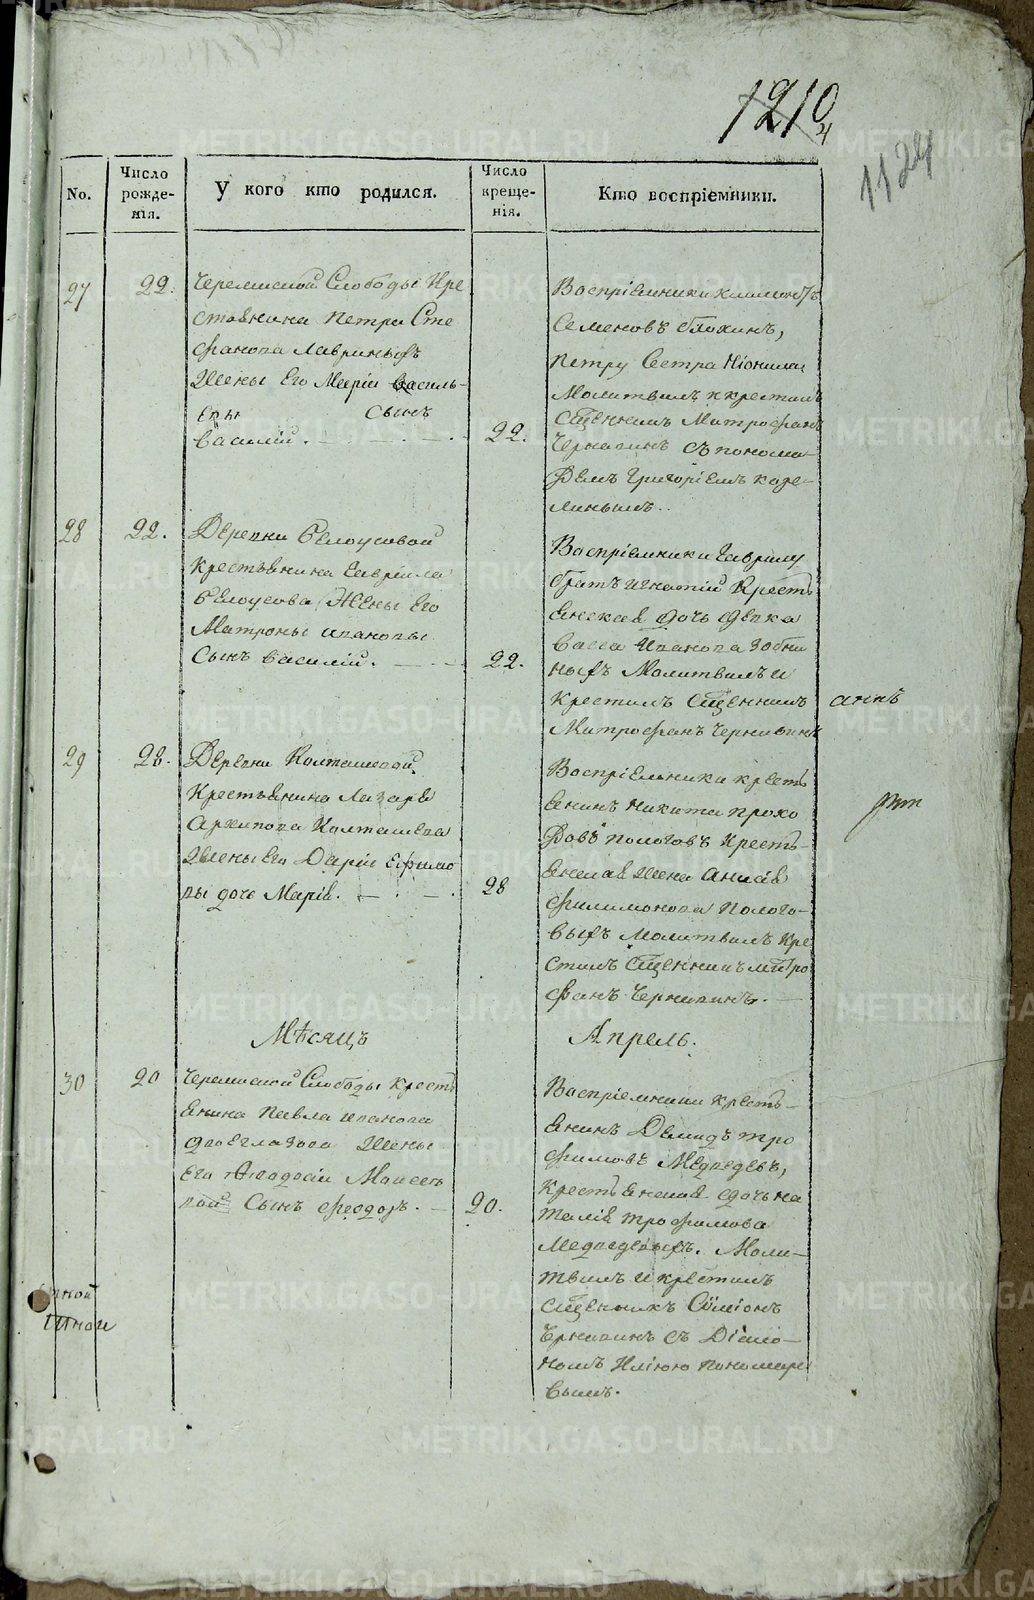 1210
1124
No.
Число рожде-
нія.
У кого кто родился.
Число
креще-
нія.
Кто воспріемники.
27
22.
Черемиской Слободы Кре
стьянина Петра Сте
фанова Лавриныхъ
Жены Его Маріи Василь-
евы Сынъ
Василій.
22.
Воспріемники
Семеновъ Блохинъ,
Петру Сестра Ніонила
Молитвилъ и крестилъ
Сщенникъ Митрофанъ
Чернавинъ съ понома-
ремъ Григоріемъ Коре-
линымъ.
28
22.
Деревни Белоусовой
Крестьянина Гавріила
Белоусова Жены Его
Матроны Ивановы
Сынъ Василій.
22.
Воспріемники Гаврилу
братъ Игнатій Кресть
янская дочь девка
Васса Иванова Зобни
ныхъ Молитвилъ и
Крестилъ Сщенникъ
Митрофанъ Чернавинъ
29
28.
Деревни Колташевой
Крестьянина Лазаря
Архипова Колташева
Жены Его Даріи Ефимо
вы дочь Марія.
28
Воспріемники кресть
янинъ Никита Прохо
ровъ Пологовъ Кресть-
янская Жена Анисія
Филимонова Полого-
выхъ Молитвилъ Кре
стилъ Сщенникъ Митро
фанъ Чернавинъ.
Мѣсяцъ
Апрель.
30
20
Черемиской Слободы Кресть
янина Павла Иванова
Двоеглазова Жены
Его Ѳеодосіи Моисее
вой Сынъ Феодоръ.
20.
Воспріемники Кресть-
янинъ Демидъ Тро
фимовъ Медведевъ,
Крестьянская дочь На
талія Трофимова
Медведевыхъ. Моли-
твилъ и крестилъ
Сщенникъ Сѵмеонъ
Чернавинъ съ Діако-
номъ Иліею Пономаре
вымъ.